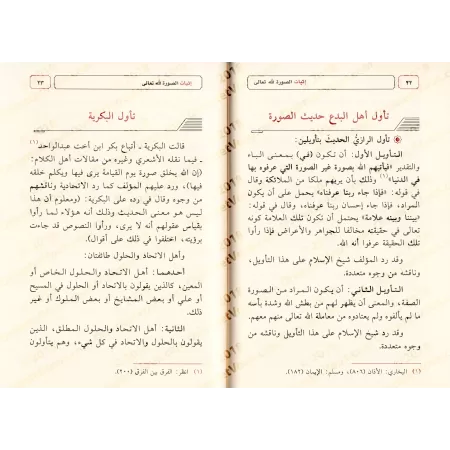 ٢٢
إثبات الصورة لله تعالى
تأول أهل البدع حديث الصورة
تأول الرازي الحديث بتأويلين:
التأويل الأول: أن تكون (في) بمعنى الباء
والتقدير «فيأتيهم الله بصورة غير الصورة التي عرفوه بها
في الدنيا» وذلك بأن يريهم ملكا من الملائكة وقال
في قوله: «فإذا جاء ربنا عرفناه» يحمل على أن يكون
المراد: فإذا جاء إحسان ربنا عرفناه، وقال في قوله:
«بيننا وبينه علامة» يحتمل أن تكون تلك العلامة كونه
تعالى في حقيقته مخالفا للجواهر والأعراض فإذا رأوا
تلك الحقيقة عرفوا أنه الله.
وقد رد المؤلف شيخ الإسلام على هذا التأويل،
وناقشه من وجوه متعددة.
التأويل الثاني: أن يكون المراد من الصورة
الصفة، والمعنى أن يظهر لهم من بطش الله وشدة بأسه
ما لم يألفوه ولم يعتادوه من معاملة الله تعالى منهم معهم.
وقد رد شيخ الإسلام على هذا التأويل وناقشه من
وجوه متعددة.
(١) البخاري: الأذان (٨٠٦)، ومسلم: الإيمان (١٨٢).
إثبات الصورة لله تعالى
٢٣
تأول البكرية
قالت البكرية ـ أتباع بكر ابن أخت عبدالواحد(١)
ـ فيما نقله الأشعري وغيره من مقالات أهل الكلام:
(إن الله يخلق صورة يوم القيامة يرى فيها ويكلم خلقه
فيها)، ورد عليهم المؤلف كما رد الاتحادية وناقشهم
من وجوه وقال في رده على البكرية: (ومعلوم أن هذا
ليس هو معنى الحديث وذلك أنه هؤلاء لما رأوا
بقياس عقولهم أنه لا يرى، ورأوا النصوص قد جاءت
برؤيته، اختلفوا في ذلك على أقوال).
وأهل الاتحاد والحلول طائفتان:
أحدهما: أهل الاتحاد والحلول الخاص أو
المعين، كالذين يقولون بالاتحاد أو الحلول في المسيح
أو علي أو بعض المشايخ أو بعض الملوك أو غير
ذلك.
الثانية: أهل الاتحاد والحلول المطلق، الذين
يقولون بالاتحاد والحلول في كل شيء، وهم يتأولون
(١) انظر: الفرق بين الفرق (٢٠٠).